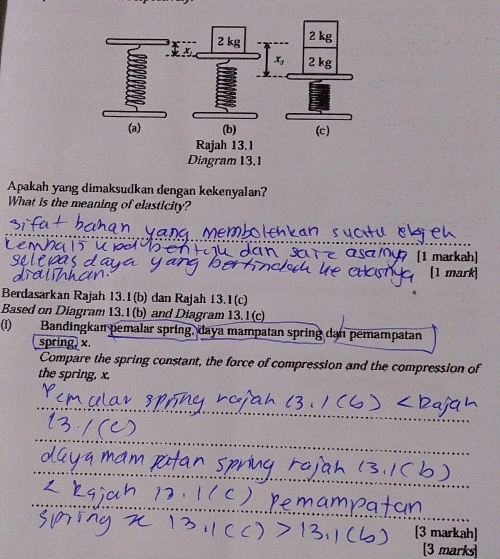 2 kg
2 kg
2 kg
x₁
x₂
(a)
(b)
(c)
Rajah 13.1
Diagram 13.1
Apakah yang dimaksudkan dengan kekenyalan?
What is the meaning of elasticity?
sifat bahan yang membolehkan suatu objek
kembali kpd bentuk dan saiz asalnya [1 markah]
selepas daya yang bertindak ke atasnya [1 mark]
dialihkan.
Berdasarkan Rajah 13.1(b) dan Rajah 13.1(c)
Based on Diagram 13.1(b) and Diagram 13.1(c)
(i) Bandingkan pemalar spring, daya mampatan spring dan pemampatan
spring, x.
Compare the spring constant, the force of compression and the compression of
the spring, x.
Pemalar spring rajah 13.1(b) < Rajah
13.1(c)
daya mampatan spring rajah 13.1(b)
< Rajah 13.1(c) pemampatan
spring x 13.1(c) > 13.1(b) [3 markah]
[3 marks]